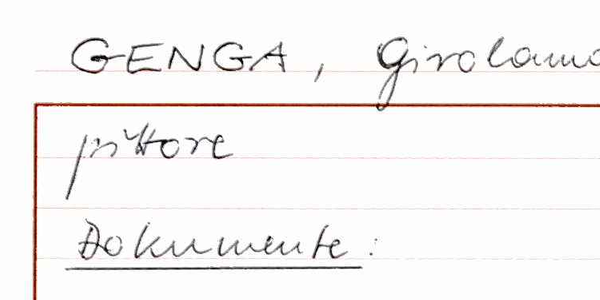 GENGA, Girolamo
pittore
Dokumente: